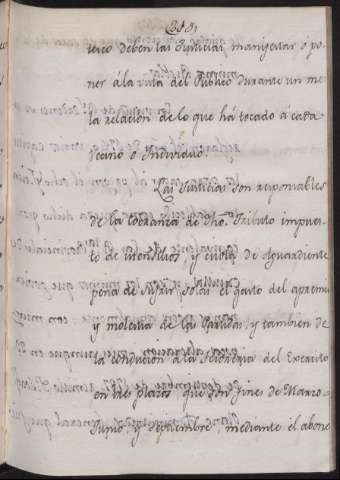 tenco deben las Justicias manifestar ó po-
ner á la vista del Publico durante un mes
la relacion de lo que há tocado á cada
Vecino ó Individuo.
Las Justicias son responsables
de la cobranza de dho. Tributo impues-
to de utensilios, y cuota de Aguardiente
pena de sufrir solas el gasto del apremio
y molestia de las Partidas, y tambien de
la conducion á la Tesoreria del Exercito
en tres plazos que son fines de Marzo
Junio, y Septiembre, mediante el abono